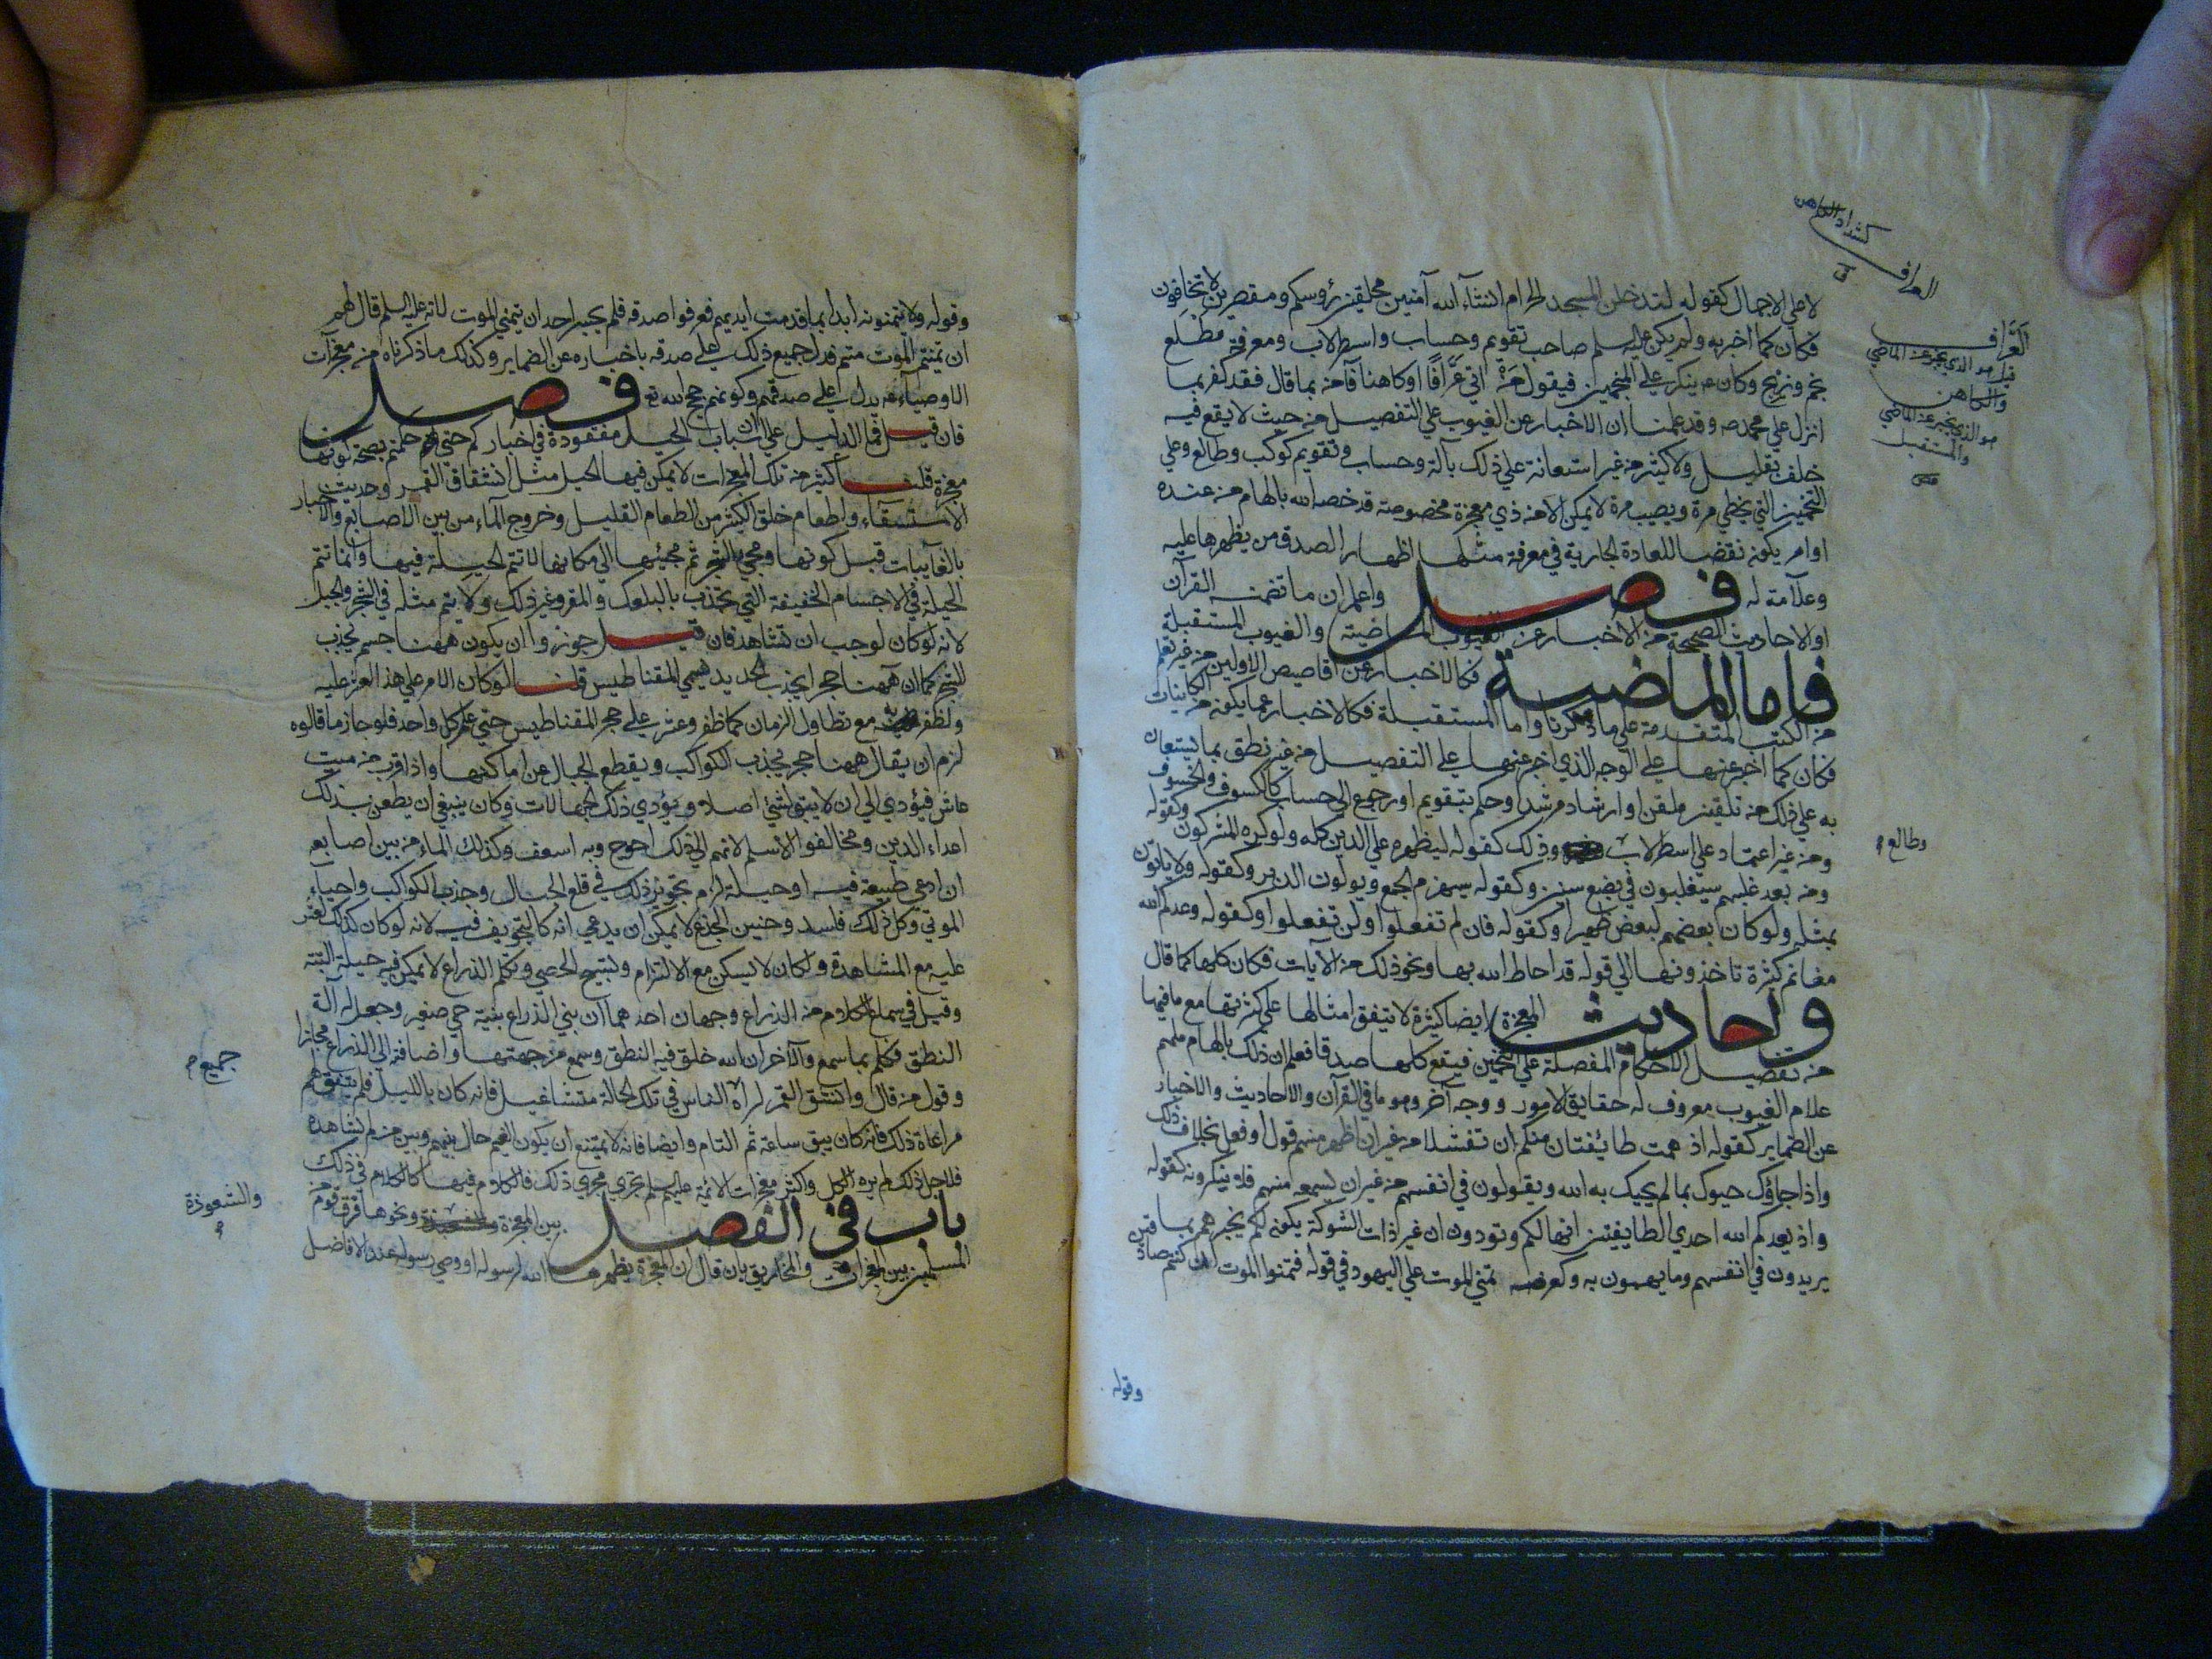 لا علي الاجمال كقوله لتدخلن المسجد الحرام انشآء الله آمنين محلقين رؤسكم ومقصرين لا تخافون
فكان كما اخبر به ولم يكن عليه السلم صاحب تقويم وحساب واسطرلاب ومعرفة مطلع
نجم وزيج وكان ينكر علي المنجمين فيقول من اتي عرّافًا او كاهنا فآمن بما قال فقد كفر بما
انزل علي محمد وقد علمنا ان الاخبار عن الغيوب علي التفصيل من حيث لا يقع فيه
خلف بقليل ولا كثير من غير استعانة علي ذلك بآلة وحساب وتقويم كوكب وطالع وعلي
التخمين التي يخطي مرة ويصيب مرة لا يمكن الا من ذي معجزة مخصوصة قد خصه الله بالهام من عنده
او امر يكون نقضا للعادة الجارية في معرفة مثلها اظهارا لصدق من يظهرها عليه
وعلآمة له فصل واعلم ان ما تضمنه القرآن
او الاحاديث الصحيحة من الاخبار عن الغيوب الماضية والغيوب المستقبلة
فاما الماضية فكالاخبار عن اقاصيص الاولين من غير تعلم
من الكتب المتقدمة علي ما ذكرنا واما المستقبلة فكالاخبار عما يكون من الكاينات
فكان كما اخبر عنها علي الوجه الذي اخبر عنها علي التفصيل من غير نطق بما يستعان
به علي ذلك من تلقين ملقن او ارشاد مرشد او حكم بتقويم او رجوع الي حساب كالكسوف والخسوف
ومن غير اعتماد علي اسطرلاب وذلك كقوله ليظهره علي الدين كله ولو كره المشركون وكقوله
ومن بعد غلبهم سيغلبون في بضع سنين وكقوله سيهزم الجمع ويولون الدبر وكقوله ولا ياتون
بمثله ولو كان بعضهم لبعض ظهيرا وكقوله فان لم تفعلوا ولن تفعلوا وكقوله وعدكم الله
مغانم كثيرة تاخذونها الي قوله قد احاط الله بها ونحو ذلك من الآيات فكان كلها كما قال
واحاديث المعجزة ايضا كثيرة لا يتفق امثالها علي كثرتها مع ما فيها
من تفصيل الاحكام المفصلة علي التخمين فيقع كلها صدقا فعلم ان ذلك بالهام ملهم
علام الغيوب معروف له حقايق الامور ووجه آخر وهو ما في القرآن والاحاديث والاخبار
عن الضماير كقوله اذ همت طائفتان منكم ان تفشلا من غير ان ظهر منهم قول او فعل بخلاف ذلك
واذا جاؤك حيوك بما لم يحيك به الله ويقولون في انفسهم من غير ان يسمعه منهم فلا ينكرونه كقوله
واذ يعدكم الله احدي الطايفتين انها لكم وتودون ان غير ذات الشوكة يكون لكم يخبرهم بما
يريدون في انفسهم وما يهمون به وكعرضه تمني الموت علي اليهود في قوله فتمنوا الموت ان كنتم صادقين
وقوله
العراف
العَرّاف
قيل هو الذي يخبر عن الماضي
والكاهن
هو الذي يخبر عن الماضي
والمستقبل
وطالع
وقوله ولا يتمنونه ابدا بما قدمت ايديهم فعرفوا صدقه فلم يجسر احد ان يتمني الموت لانه عليه السلم قال لهم
ان تمنيتم الموت متم فدل جميع ذلك علي صدقه باخباره عن الضماير وكذلك ما ذكرناه من معجزات
الاوصيآء يدل علي صدقهم وكونهم حجج الله فصل
فان قيل فما الدليل علي ان اسباب الحيل مفقودة في اخباركم حتي حكمتم بصحة كونها
معجزة قلت اكثر من تلك المعجزات لا يمكن فيها الحيل مثل انشقاق القمر وحديث
الاستسقاء واطعام خلق الكثير من الطعام القليل وخروج المآء من بين الاصابع والاخبار
بالغآيبات قبل كونها ومجي الشجر ثم مجيئها الي مكانها لا تتم الحيلة فيها وانما تتم
الحيلة في الاجسام الخفيفة التي يجذب بالبلوك والمقر وغير ذلك ولا يتم مثله في الشجر والجبل
لانه لو كان لوجب ان تشاهد فان قيل جوزوا ان يكون ههنا جسم يجذب
الشجر كما ان ههنا حجرا يجذب الحديد يسمي المقناطيس قلنا لو كان الامر علي هذا لعثر عليه
ولظفر به مع تطاول الزمان كما ظفر وعثر علي حجر المقناطيس حتي علمه كل واحد فلو جاز ما قالوه
لزم ان يقال ههنا حجر يجذب الكواكب ويقطع الجبال عن اماكنها واذا قرب من ميت
عاش فيؤدي الي ان لا يبقي شيئ اصلا ويؤدي ذلك الجهالات وكان ينبغي ان يطعن بذلك
اعداء الدين ومخالفوا الاسلام لانهم الي ذلك احوج وبه اسعف وكذلك الماء من بين اصابعه
ان ادعي طبيعة فيه او حيلة لزم تجويز ذلك في قلع الجبال وجذب الكواكب واحياء
الموتي وكل ذلك فاسد وحنين الجذع لا يمكن ان يدعي انه كان لتجويف فيه لانه لو كان كذلك لعثر
عليه مع المشاهدة ولكان لا يسكن مع الالتزام وتسبيح الحصي وتكلم الذراع لا يمكن فيه حيلة البتة
وقيل في سماع الكلام من الذراع وجهان احدهما ان بني الذراع بنية حي صغير وجعل له آلة
النطق فتكلم بما سمع والآخر ان الله خلق فيه النطق وسمع من جهتها واضافه الي الذراع مجازا
وقول من قال وانشق القمر لرآه الناس في تلك الحالة متشاغيل فانه كان بالليل فلم يتفق لهم
مراعاة ذلك فانه كان يبق ساعة ثم التام وايضا فانه لا يمتنع ان يكون الغيم حال بينهم وبين من لم يشاهده
فلاجل ذلك لم يره الكل واكثر معجزات الائمة عليهم السلم تجري مجري ذلك فالكلام فيها كالكلام في ذلك
باب في الفصل بين المعجزة ونحوها فرق قوم من
المسلمين بين المعجزات والمخاريق بان قال ان المعجزة يظهرها الله لرسوله او وصي رسوله عند الافاضل
جميع
والشعوذة